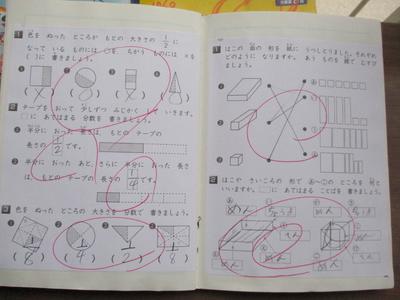 1 色を ぬった ところが もとの 大きさの 1/2 に
なって いる ものには ○を ちがう ものには ×を
( )に 書きましょう。
2 テープを おって 少しずつ みじかく して いきます。
□に あてはまる 分数を 書きましょう。
① 半分に おった 長さは、もとの テープの
長さの 1/2 です。
② 半分に おった あと、さらに 半分に おった 長さ
は、もとの テープの 長さの 1/4 です。
3 色を ぬった ところの 大きさを 分数で 書きましょう。
① ② ③ ④
(1/8) (1/4) (1/2) (1/8)
1 はこの 面の 形を 紙に うつしとりました。それぞれ
どのように なりますか。 あう ものを 線で むすび
ましょう。
① ② ③
2 はこや さいころの 形で
ところを 何と
いいますか。□に あてはまる ことばを 書きましょう。
めん